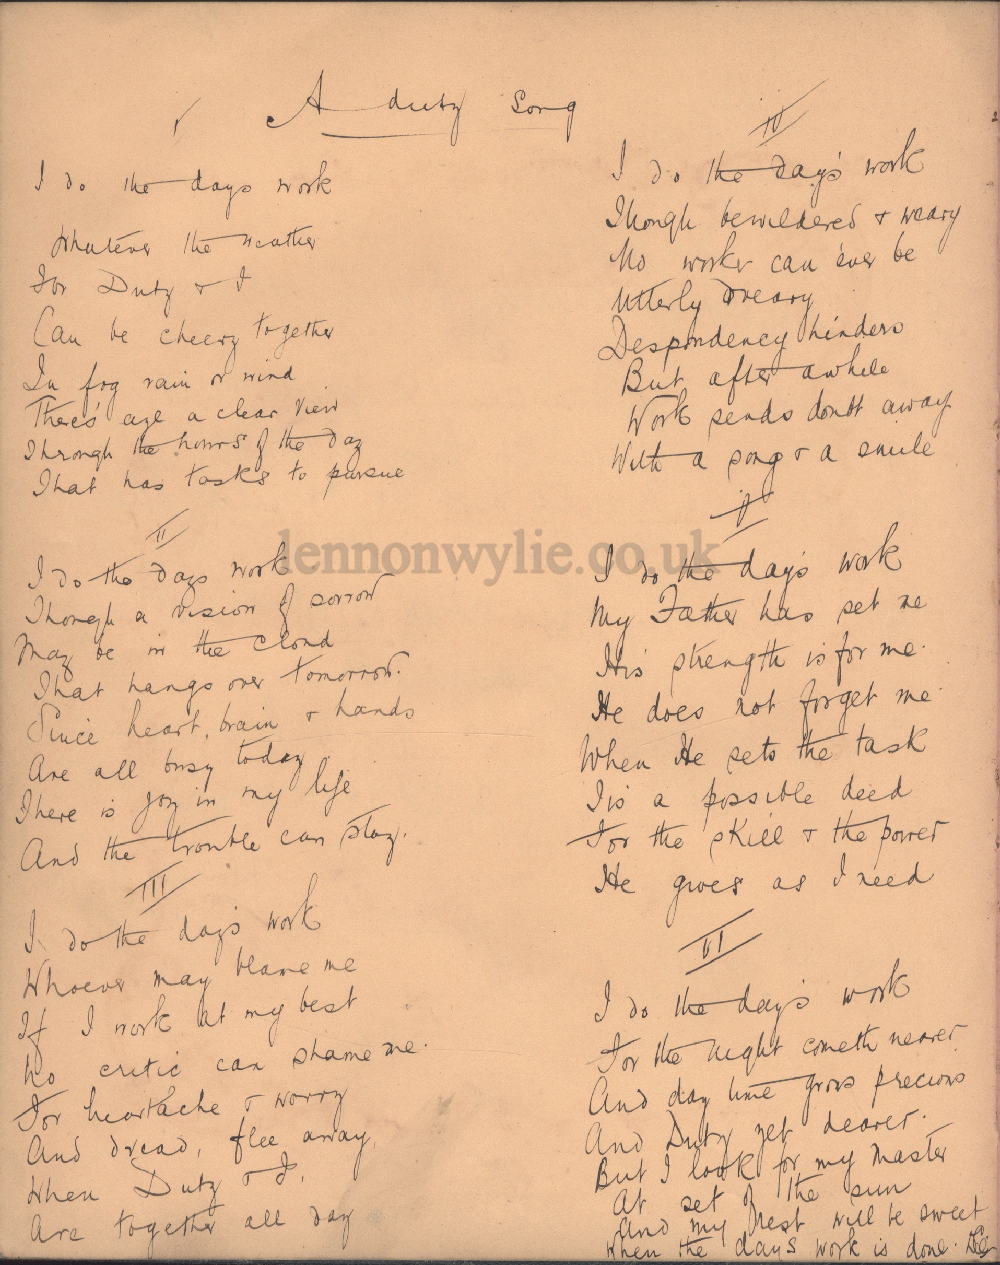 A duty Song
I
I do the days work
Whatever the weather
For Duty & I
Can be cheery together
In fog rain or wind
There's aye a clear view
Through the hours of the day
That has tasks to pursue
II
I do the days work
Though a vision of sorrow
May be in the cloud
That hangs over tomorrow.
Since heart, brain & hands
Are all busy today
There is joy in my life
And the trouble can stay.
III
I do the day's work
Whoever may blame me
If I work at my best
No critic can shame me.
For heartache & worry
And dread, flee away,
When Duty & I,
Are together all day
IV
I do the day's work
Though bewildered & weary
No worker can ever be
Utterly dreary
Despondency hinders
But after awhile
Work sends doubt away
With a song & a smile
V
I do the day's work
My Father has set me
His strength is for me.
He does not forget me.
When He sets the task
Tis a possible deed
For the skill & the power
He gives as I need
VI
I do the day's work
For the night cometh nearer
And day time grows precious
And Duty yet dearer.
But I look for my Master
At set of the sun
And my rest will be sweet
When the day's work is done.
lennonwylie.co.uk